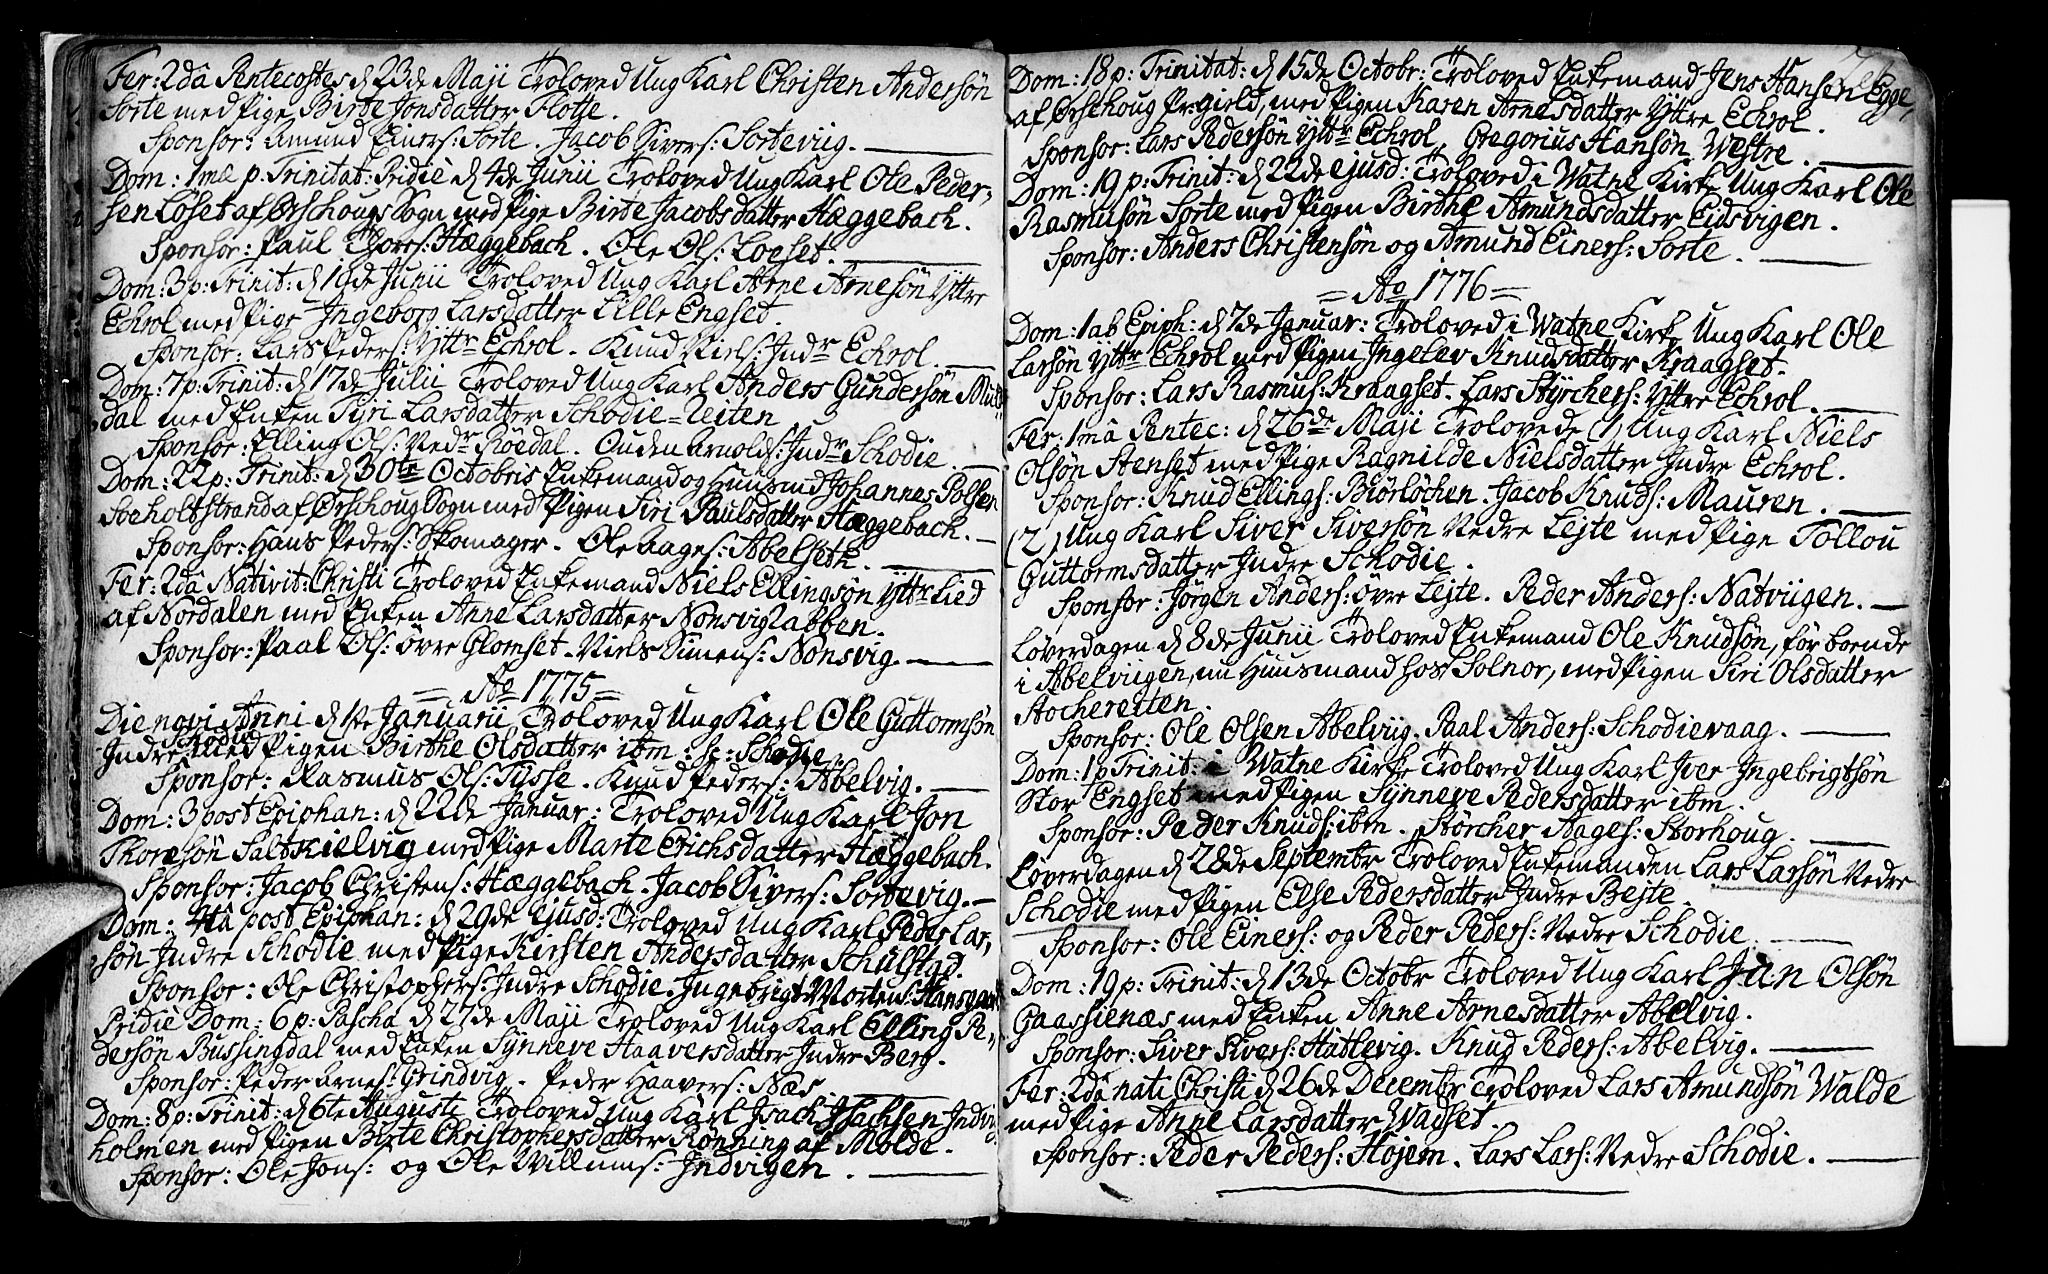 Fer: 2dâ Pentecostes d 23de Maji Troloved Ung Karl Christen Andersøn
Sorte med Pige Birte Jonsdatter Flotte.
Sponsor: Amund Einers: Sorte. Jacob Sivers: Sorteviig.
Dom: 1mæ p. Trinitat: Pridie d 4de Junii Troloved Ung Karl Ole Peder-
sen Løset af Ørschougs Sogn med Pige Birte Jacobsdatter Hæggebach.
Sponsor: Paul Thores: Hæggebach. Ole Ols: Loeset.
Dom: 3 p: Trinit: d 18de Junii Troloved Ung Karl Arne Arnesøn Yttre
Echrol med Pige Ingeborg Larsdatter Lille Engset.
Sponsor: Lars Peders: Yttr Echrol. Knud Niels: Indr Echrol.
Dom: 7 p: Trinit: d 17de Julii Troloved Ung Karl Anders Gundersøn
dal med Enken Syri Larsdatter Schodie=Leiten
Sponsor: Elling Ols: Nedr Røedal. Ouden Arnolds: Indr Schodie.
Dom: 22 p: Trinit: d 30te Octobris Enkemand og Huusmd Johannes Polsen
Soeholtstrand af Ørschoug Sogn med Pigen Siri Paulsdatter Hæggebach.
Sponsor: Hans Peders: Skomager. Ole Aages: Abelseth.
Fer: 2dâ Nativit: Christi Troloved Enkemand Niels Ellingsøn Yttr Lied
af Nordalen med Enken Anne Larsdatter Nonsvig Labben.
Sponsor: Paal Ols: øvre Glomset. Niels Simens: Nonsvig.
= Ao 1775 =
Die novi Anni d 1ste Januarii Troloved Ung Karl Ole Guttormsøn
Indre Schodie med Pigen Birthe Olsdatter ibm :/: Schodie.
Sponsor: Rasmus Ols: Tysse. Knud Peders: Abelvig.
Dom: 3 post Epiphan: d 22de Januar: Troloved Ung Karl Jon
Thoresøn Saltkielvig med Pige Marte Erichsdatter Hæggebach.
Sponsor: Jacob Christens: Hæggebach. Jacob Sivers: Sortevig.
Dom: 4tâ post Epiphan: d 29de ejusd: Troloved Ung Karl Peder Lar-
søn Indre Schodie med Pige Kirsten Andersdatter Schulstad.
Sponsor: Ole Christophers: Indre Schodie. Ingebrigt Mortens:
Pridie Dom: 6 p: Pascha d 27de Maji Troloved Ung Karl Elling Pe-
dersøn Bussingdal med Enken Synneve Haaversdatter Indre Berg.
Sponsor: Peder Arnes: Grindvig. Peder Haavers: Næs
Dom: 8 p: Trinit: d 6te Augusti Troloved Ung Karl Isach Isachsen Indvi-
holmen med Pigen Birte Christophersdatter Rønning af Molde.
Sponsor: Ole Jons: og Ole Villums: Indvigen.
Dom: 18 p: Trinitat: d 15de Octobr: Troloved Enkemand Jens Hansen Egge
af Ørschoug Prgield, med Pigen Karen Arnesdatter Yttre Echrol.
Sponsor: Lars Pedersøn Yttr Echrol, Gregorius Hansøn Westre.
Dom: 19 p: Trinit: d 22de ejusd: Troloved i Watne Kirke Ung Karl Ole
Rasmusøn Sorte med Pigen Birthe Amundsdatter Eidsvigen.
Sponsor: Anders Christensøn og Amund Einers: Sorte.
= Ao 1776 =
Dom: 1 ab Epiph: d 7de Januar: Troloved i Watne Kirke Ung Karl Ole
Larsøn Yttr Echrol med Pigen Ingelev Knudsdatter Kraagset.
Sponsor: Lars Rasmus: Kraagset. Lars Styrchers: Yttre Echrol.
Fer: 1mâ Pentec: d 26de Maji Trolovede (1) Ung Karl Niels
Olsøn Stenset med Pige Ragnilde Nielsdatter Indre Echrol.
Sponsor: Knud Ellings: Biørløchen. Jacob Knuds: Mauren.
(2) Ung Karl Siver Siversøn Nedre Lejte med Pige Tollou
Guttormsdatter Indre Schodie.
Sponsor: Jørgen Anders: øvre Lejte. Peder Anders: Natviigen.
Løverdagen d 8de Junii Troloved Enkemand Ole Knudsøn, før boende
i Abelviigen, nu Huusmand hos Solnor, med Pigen Siri Olsdatter
Stochereiten.
Sponsor: Ole Olsen Abelviig. Paal Anders: Schodievaag.
Dom: 1 p Trinit: i Watne Kirke Troloved Ung Karl Iver Ingebrigtsøn
Stor Engset med Pigen Synneve Pedersdatter ibm.
Sponsor: Peder Knuds: ibm. Størcher Aages: Storhoug.
Løverdagen d 28de Septembr Troloved Enkemanden Lars Larsøn Nedre
Schodie med Pigen Else Pedersdatter Indre Bejte.
Sponsor: Ole Einers: og Peder Peders: Nedre Schodie.
Dom: 19 p: Trinit: d 13de Octobr Troloved Ung Karl Jan Olsøn
Gaassienæs med Enken Anne Arnesdatter Abelvig.
Sponsor: Siver Sivers: Hatlevig. Knud Peders: Abelvig.
Fer: 2dâ nati Christi d 26de Decembr Troloved Lars Amundsøn Walde
med Pige Anne Larsdatter Wadset.
Sponsor: Peder Peders: Højem. Lars Lars: Nedre Schodie.